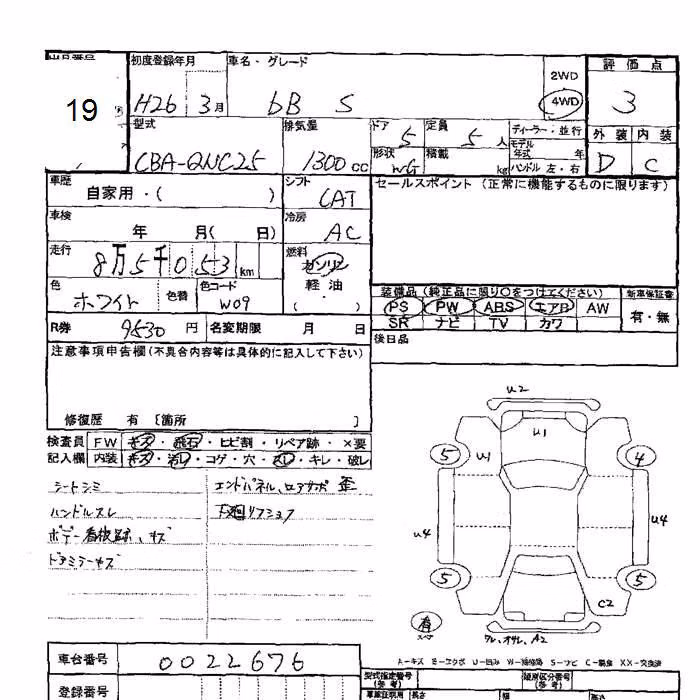 19
初度登録年月 車名・グレード
H26 3月 bB S
2WD
4WD
評価点
3
型式 排気量 ドア 定員 ディーラー・並行
CBA-QNC25 1300cc 5 5人
モデル年式 年
形状 積載 ハンドル 左・右
WG kg
外装 内装
D C
車歴 シフト
自家用・( ) CAT
セールスポイント (正常に機能するものに限ります)
車検 冷房
年 月( 日) AC
走行 燃料
8万5千053km ガソリン
軽油
( )
色 色替 色コード
ホワイト W09
装備品 (純正品に限り○をつけてください) 新車保証書
PS PW ABS エアB AW 有・無
SR ナビ TV カワ
R券 9530円 名変期限 月 日
後日品
注意事項申告欄(不具合内容等は具体的に記入して下さい)
修復歴 有 [箇所 ]
検査員 FW キズ・飛石・ヒビ割・リペア跡・×要
記入欄 内装 キズ・汚レ・コゲ・穴・スレ・キレ・破レ
シートシミ エンドパネル、ロアサポ 歪
ハンドルスレ 下廻リフジュフ
ボデー看板跡、キズ
ドアミラーキズ
U2
U1
5 U1 4
U4 U4
5 5
C2
有
スペア
A2
A-キズ E-エクボ U-凹み W-補修跡 S-サビ C-腐食 XX-交換済
車台番号 0022676
登録番号
型式指定番号 類別区分番号
(参考) (参考)
車検証明用 長さ 幅 高さ